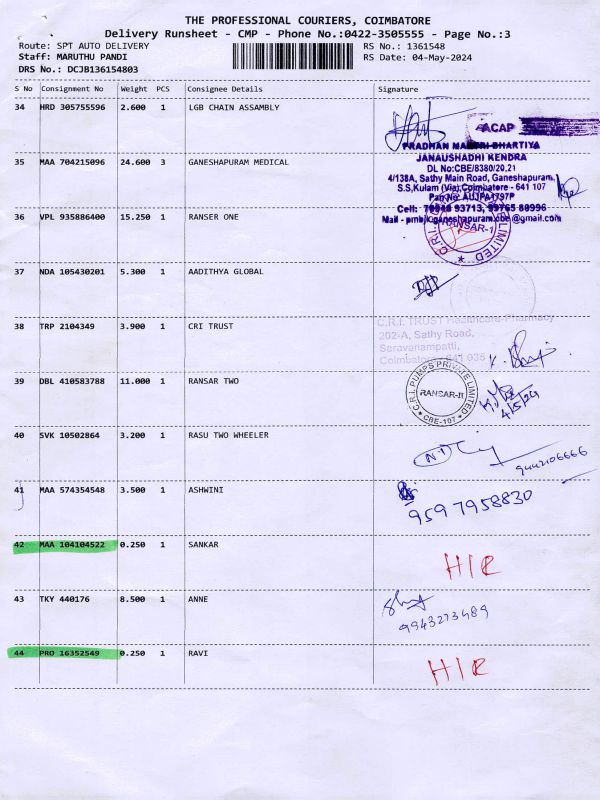 THE PROFESSIONAL COURIERS, COIMBATORE
Delivery Runsheet - CMP - Phone No.:0422-3505555 - Page No.:3
Route: SPT AUTO DELIVERY RS No.: 1361548
Staff: MARUTHU PANDI RS Date: 04-May-2024
DRS No.: DCJB136154803
S No Consignment No Weight PCS Consignee Details Signature
34 HRD 305755596 2.600 1 LGB CHAIN ASSAMBLY
ACAP
PRADHAN MANTRI BHARTIYA
JANAUSHADHI KENDRA
35 MAA 704215096 24.600 3 GANESHAPURAM MEDICAL
DL No:CBE/8380/20,21
4/138A, Sathy Main Road, Ganeshapuram,
S.S,Kulam (Via),Coimbatore - 641 107
Pan No: AUJPA1797P
Cell: 79048 93713, 99765 80996
36 VPL 935886400 15.250 1 RANSER ONE
Mail - pmbjkganeshapuram.cbe@gmail.com
C.R.I. LIMITED
RANSAR-1
37 NDA 105430201 5.300 1 AADITHYA GLOBAL
C.R.I. TRUST Healthcare-Pharmacy
38 TRP 2104349 3.900 1 CRI TRUST
202-A, Sathy Road,
Saravanampatti,
Coimbatore 641 035
C.R.I. PUMPS PRIVATE LIMITED
39 DBL 410583788 11.000 1 RANSAR TWO
RANSAR-II
CBE-107
4/5/24
40 SVK 10502864 3.200 1 RASU TWO WHEELER
9442106666
41 MAA 574354548 3.500 1 ASHWINI
9597958830
42 MAA 104104522 0.250 1 SANKAR
H/R
43 TKY 440176 8.500 1 ANNE
9943273489
44 PRO 16352549 0.250 1 RAVI
H/R